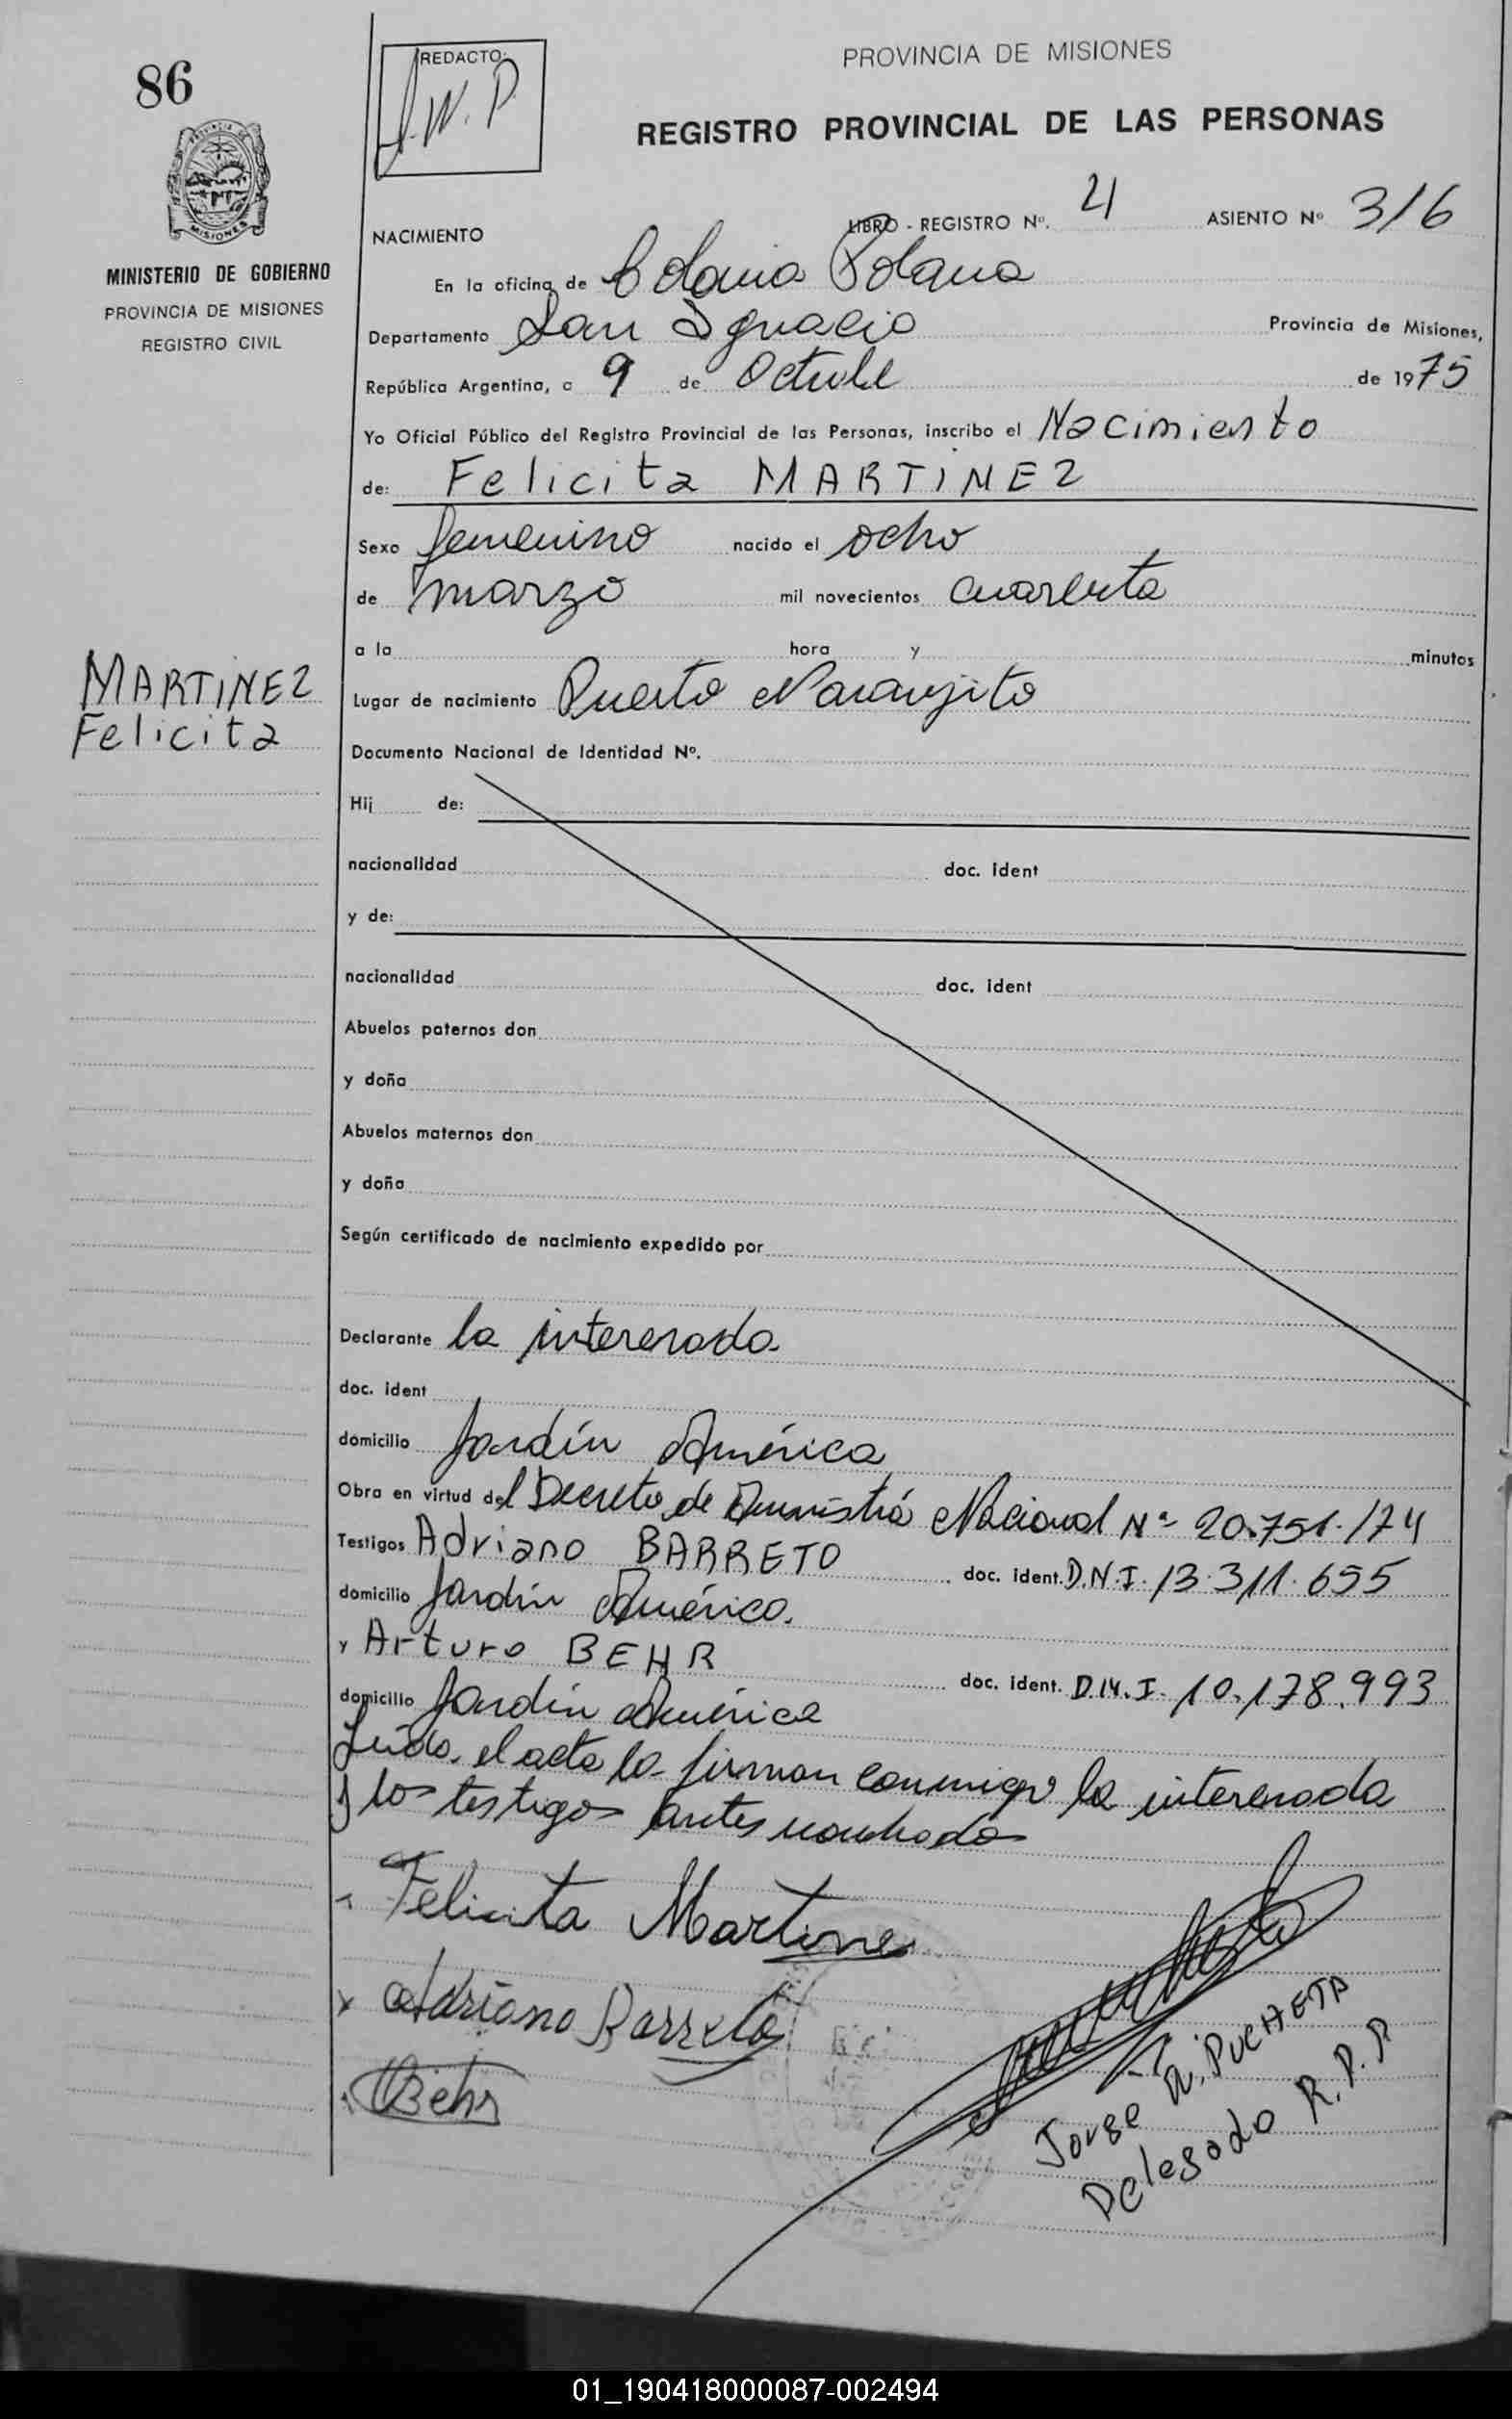 86
REDACTO:
J.W.P.
PROVINCIA DE MISIONES
REGISTRO PROVINCIAL DE LAS PERSONAS
MISIONES
MINISTERIO DE GOBIERNO
PROVINCIA DE MISIONES
REGISTRO CIVIL
NACIMIENTO
LIBRO - REGISTRO Nº. 21 ASIENTO Nº 316
En la oficina de Colonia Polana
Departamento San Ignacio Provincia de Misiones,
República Argentina, a 9 de Octubre de 1975
Yo Oficial Público del Registro Provincial de las Personas, inscribo el Nacimiento
de: Felicita MARTINEZ
Sexo femenino nacido el ocho
de marzo mil novecientos cuarenta
a la hora y minutos
MARTINEZ
Felicita
Lugar de nacimiento Puerto Naranjito
Documento Nacional de Identidad Nº.
Hij de:
nacionalidad doc. ident
y de:
nacionalidad doc. ident
Abuelos paternos don
y doña
Abuelos maternos don
y doña
Según certificado de nacimiento expedido por
Declarante la interesada
doc. ident
domicilio Jardín América
Obra en virtud del Decreto de Amnistía Nacional Nº 20.751./74
Testigos Adriano BARRETO doc. ident. D.N.I. 13.311.655
domicilio Jardín América.
y Arturo BEHR doc. ident. D.N.I. 10.178.993
domicilio Jardín América
Leída el acta la firman conmigo la interesada
y los testigos antes nombrados
Felicita Martinez
Adriano Barreto
Behr
Jorge R. PUCHETA
Delegado R.P.P
01_190418000087-002494